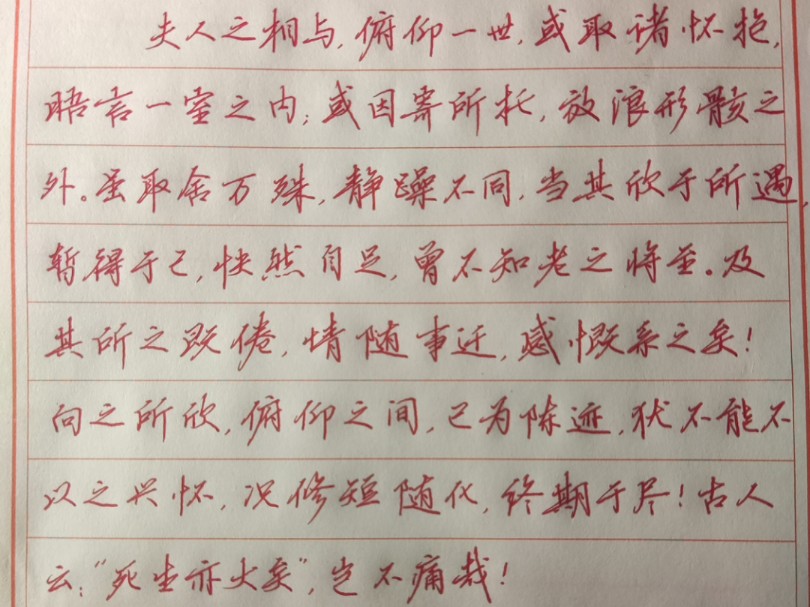 夫人之相与,俯仰一世,或取诸怀抱,
晤言一室之内;或因寄所托,放浪形骸之
外。虽取舍万殊,静躁不同,当其欣于所遇,
暂得于己,快然自足,曾不知老之将至。及
其所之既倦,情随事迁,感慨系之矣!
向之所欣,俯仰之间,已为陈迹,犹不能不
以之兴怀,况修短随化,终期于尽!古人
云:“死生亦大矣”,岂不痛哉!